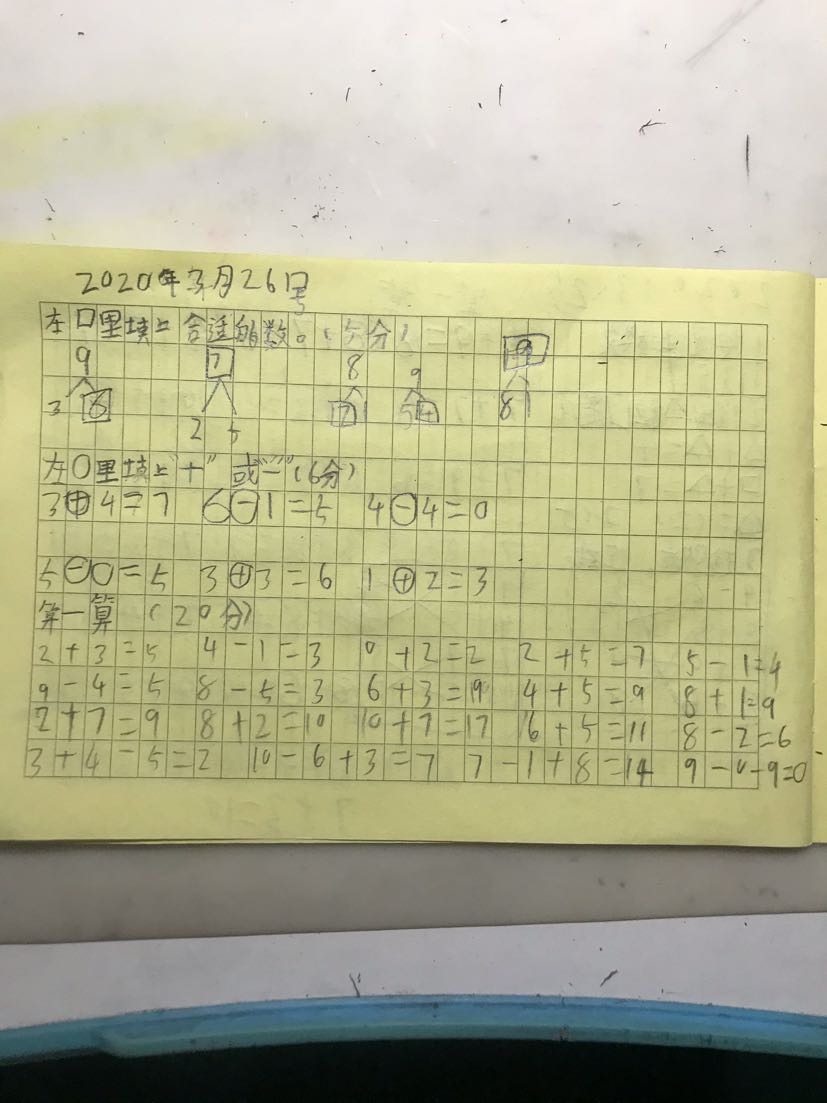 2020年3月26日
在口里填上合适的数。(5分)
9 7 8 9 9
3 6 2 5 7 1 5 4 8 1
在○里填上"+"或"-"(6分)
3+4=7 6-1=5 4-4=0
5-0=5 3+3=6 1+2=3
算一算(20分)
2+3=5 4-1=3 0+2=2 2+5=7 5-1=4
9-4=5 8-5=3 6+3=19 4+5=9 8+1=9
2+7=9 8+2=10 10+7=17 6+5=11 8-2=6
3+4-5=2 10-6+3=7 7-1+8=14 9-0-9=0